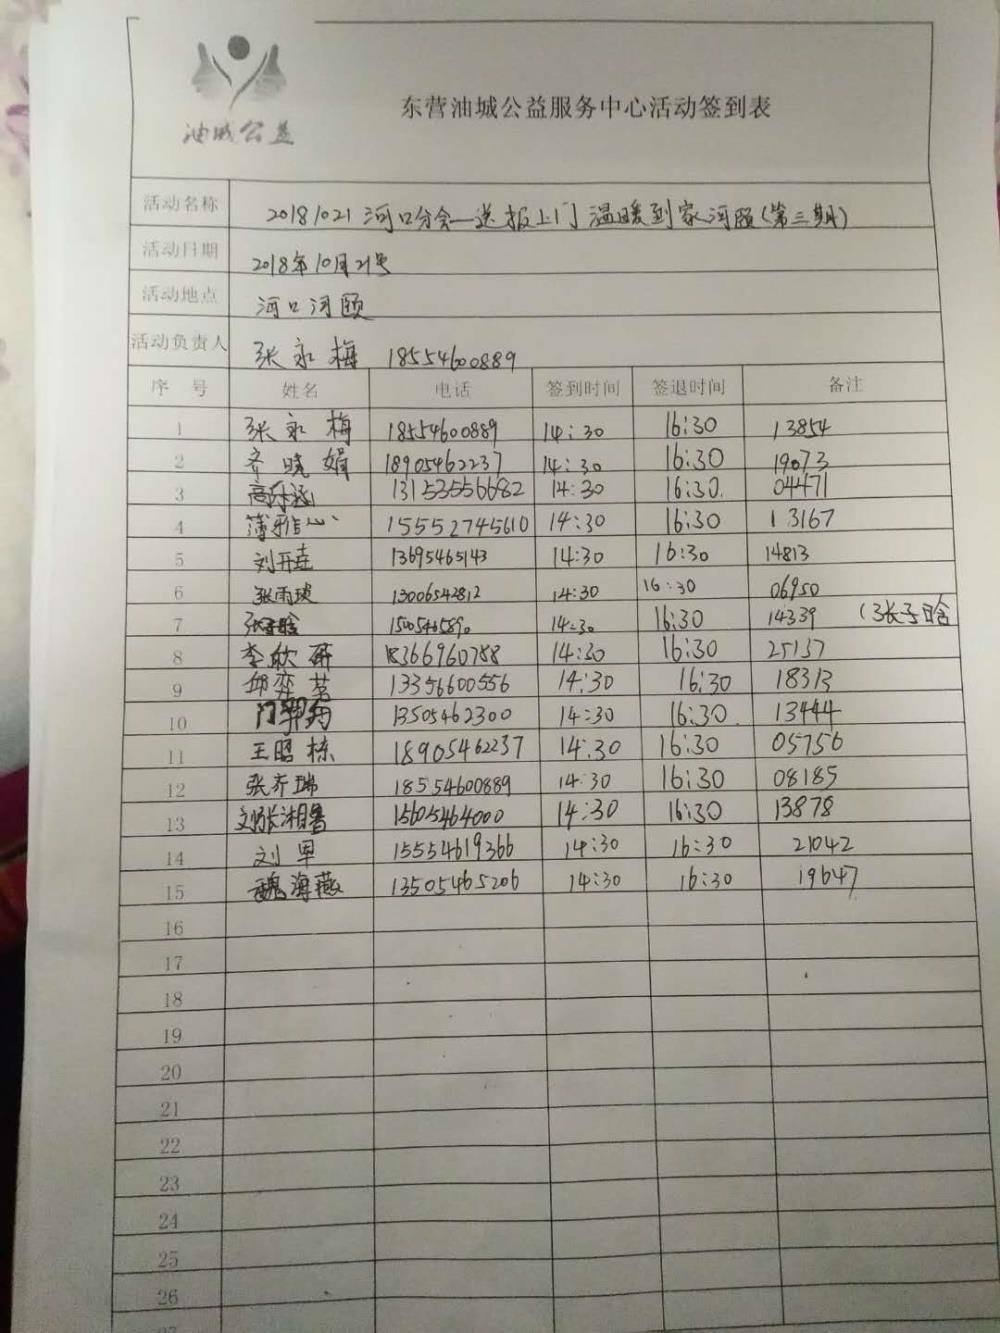 油城公益
东营油城公益服务中心活动签到表
活动名称 20181021 河口分会—送报上门 温暖到家河颐(第三期)
活动日期 2018年10月21号
活动地点 河口河颐
活动负责人 张永梅 18554600889
序号 姓名 电话 签到时间 签退时间 备注
1 张永梅 18554600889 14:30 16:30 13854
2 齐晓娟 18905462237 14:30 16:30 19073
3 13153556682 14:30 16:30. 04471
4 薄雅心 15552745610 14:30 16:30 13167
5 刘开垚 13695465143 14:30 16:30 14813
6 张雨琼 13006542812 14:30 16:30 06950
7 张子晗 14:30 16:30 14339 (张子晗
8 李欣研 18366960788 14:30 16:30 25137
9 邱弈茗 13356600556 14:30 16:30 18313
10 13505462300 14:30 16:30. 13444
11 王昭栋 18905462237 14:30 16:30 05756
12 张乔瑞 18554600889 14:30 16:30 08185
13 刘张湘鲁 15605464000 14:30 16:30 13878
14 刘军 15554619366 14:30 16:30 21042
15 魏海燕 13505465206 14:30 16:30 19647
16
17
18
19
20
21
22
23
24
25
26